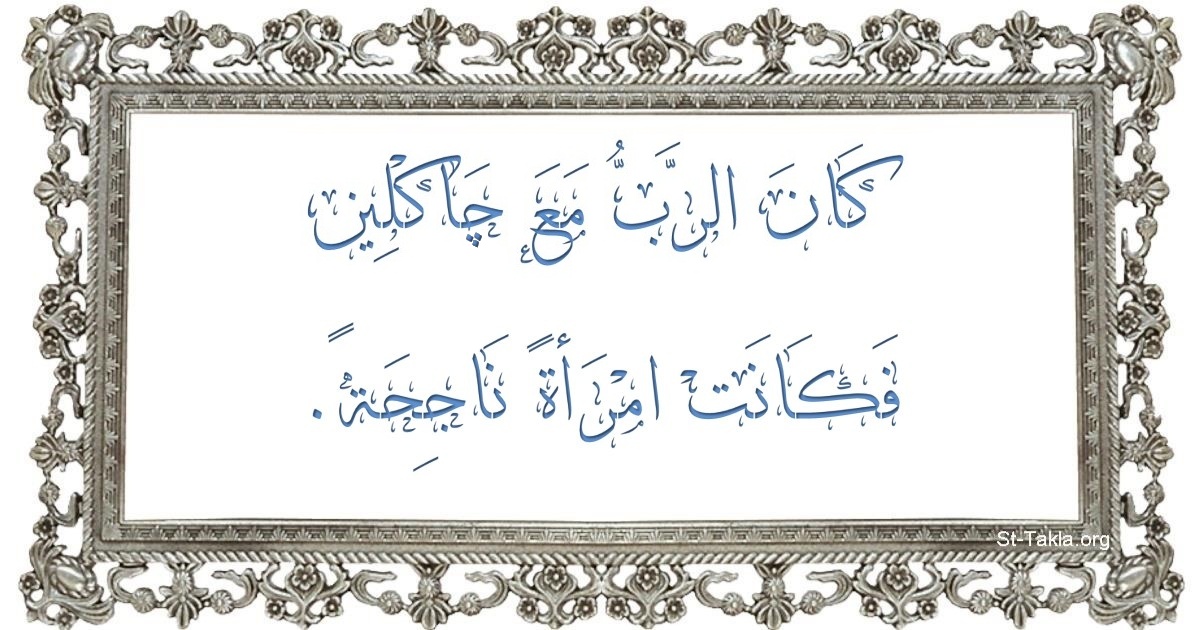 كَانَ الرَّبُّ مَعَ چَاكْلِين
فَكَانَت امْرَأَةً نَاجِحَةً.
St-Takla.org